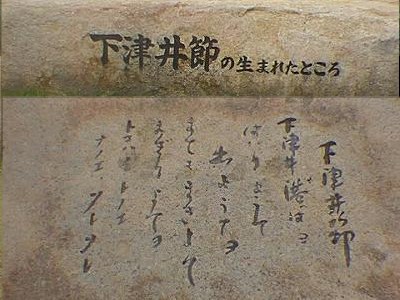 下津井節の生まれたところ
下津井節
下津井港はヨ
はいりようて
出ようてヨ
まともまきようて
まぎりようてヨ
トコハイトノエ
ナノエ ソーレソレ